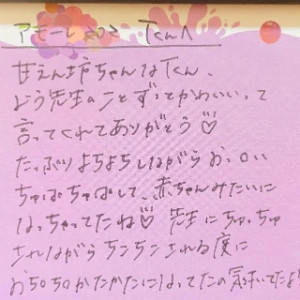 アモーレ Tくんへ
甘えん坊ちゃんなTくん、
よう先生のことずっとかわいいって
言ってくれてありがとう♡
たっぷりよちよちしながらおっ○い
ちゅぱちゅぱして、赤ちゃんみたいに
なっちゃってたね♡ 先生にちゅっちゅ
されながら される度に
おち○ち○かたかたになってたの